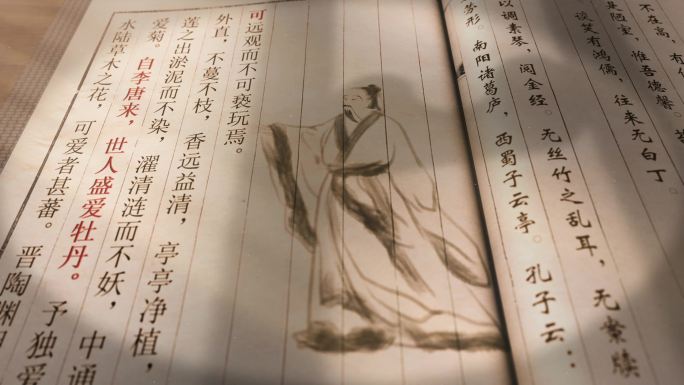 不在高，有
是陋室，惟吾德馨。
谈笑有鸿儒，往来无白丁。
以调素琴，阅金经。无丝竹之乱耳，无案牍
劳形。南阳诸葛庐，西蜀子云亭。孔子云：
水陆草木之花，可爱者甚蕃。晋陶渊
爱菊。自李唐来，世人盛爱牡丹。予独爱
莲之出淤泥而不染，濯清涟而不妖，中通
外直，不蔓不枝，香远益清，亭亭净植，
可远观而不可亵玩焉。